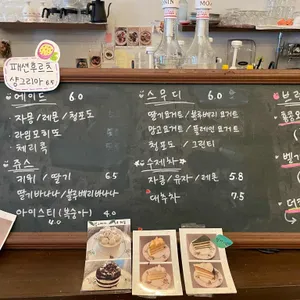 패션후르츠
샹그리아 6.5
에이드 6.0
자몽/레몬/청포도
라임모히또
체리콕
쥬스
키위 / 딸기 6.5
딸기바나나/블루베리바나나
아이스티 (복숭아) 4.0
스무디 6.0
딸기요거트/블루베리 요거트
망고요거트/플레인 요거트
청포도 / 그린티
수제차
자몽/유자/레몬 5.8
대추차 7.5